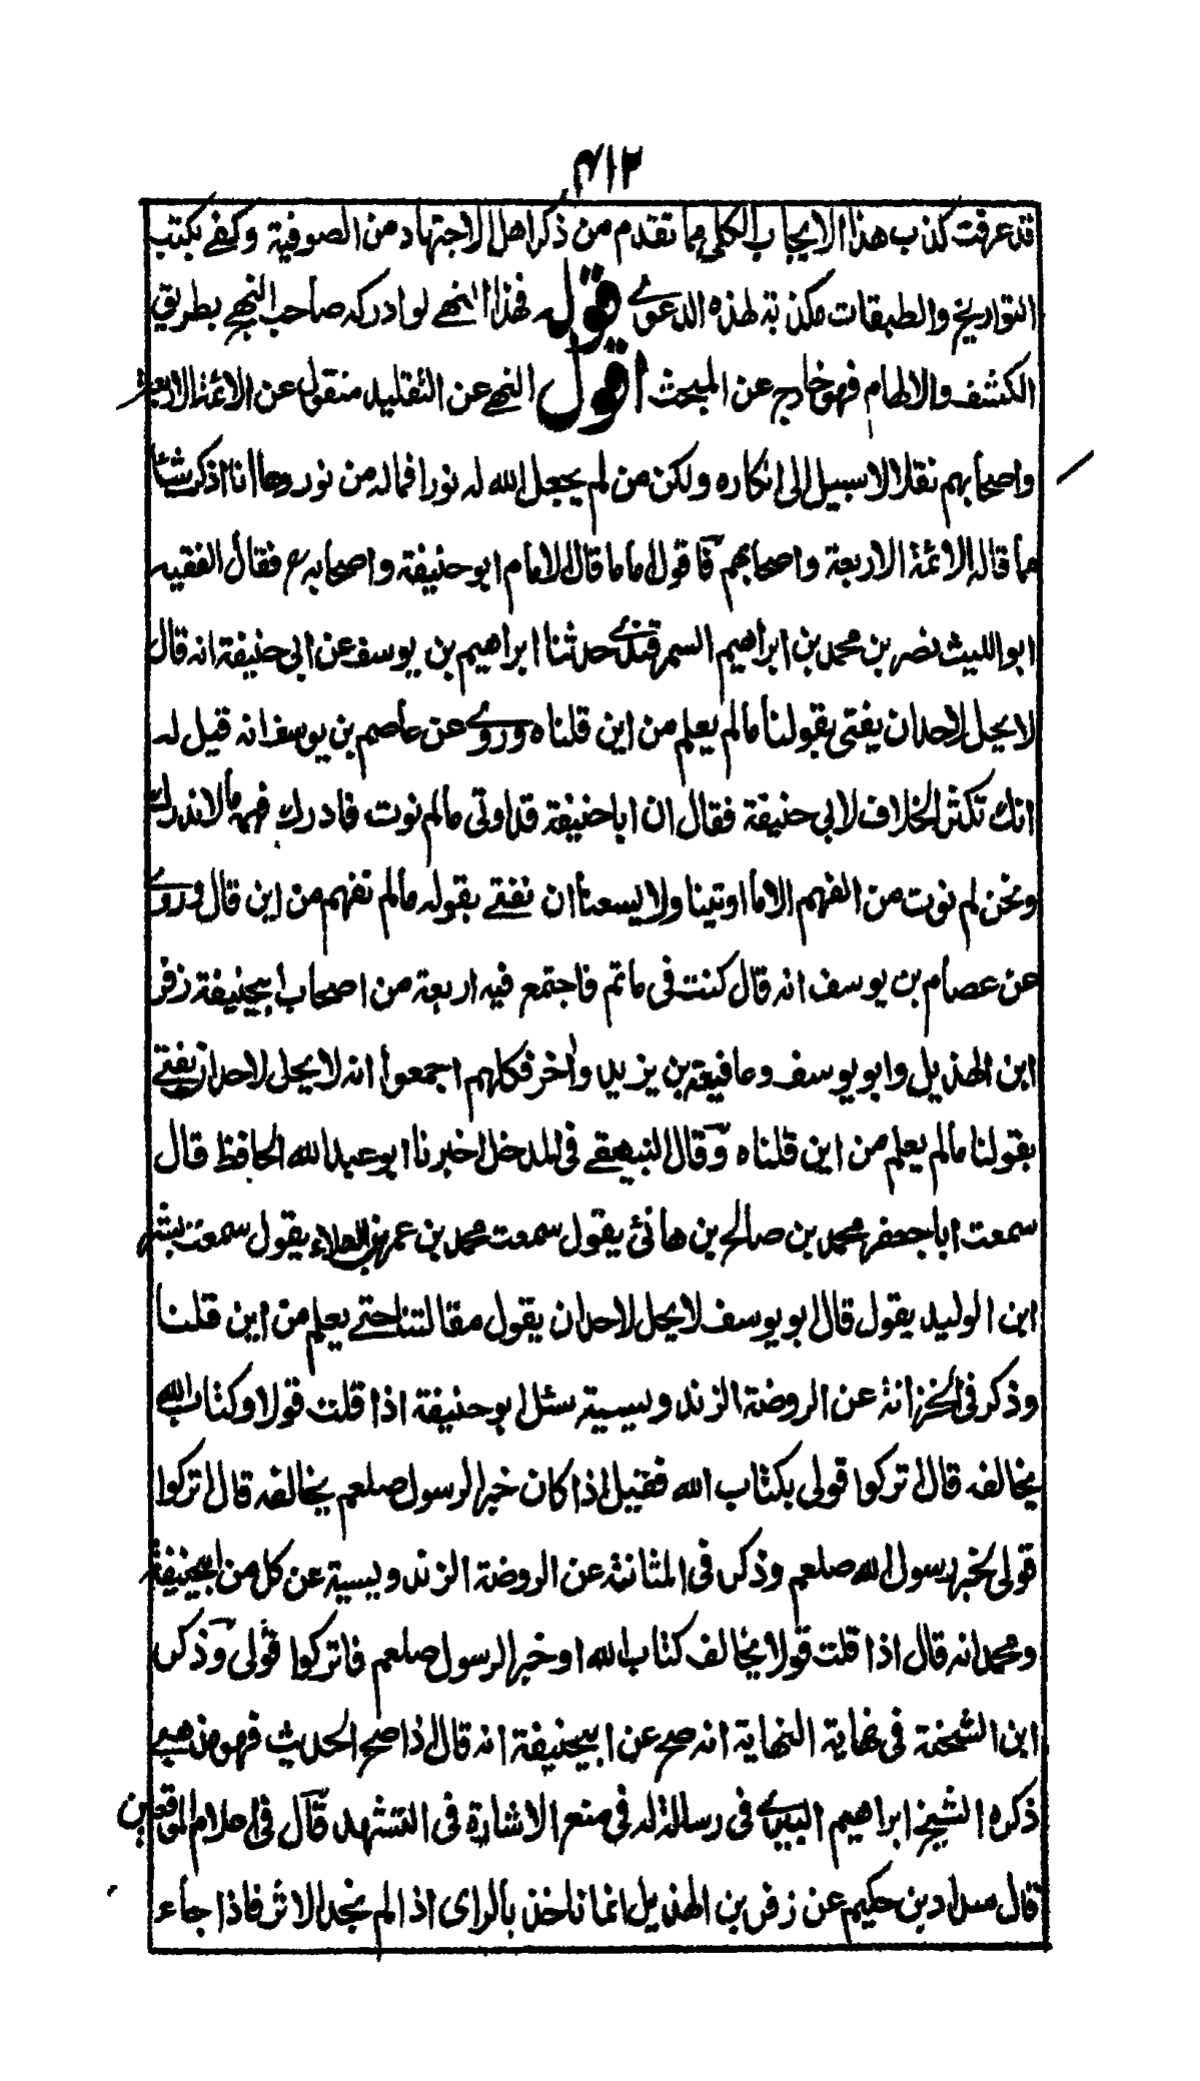 ٤١٢
قد عرفت كذب هذا الايجاب الكلي مما تقدم من ذكر اهل الاجتهاد من الصوفية وكفى بكتب
التواريخ والطبقات مكذبة لهذه الدعوى قوله فهذا النهي لو ادركه صاحب النهي بطريق
الكشف والالهام فهو خارج عن المبحث اقول النهي عن التقليد منقول عن الائمة الاربعة
واصحابهم نقلا لا سبيل الى انكاره ولكن من لم يجعل الله له نورا فما له من نور وها انا اذكر شيئا
مما قاله الائمة الاربعة واصحابهم فاقول اما ما قال الامام ابو حنيفة واصحابه فقال الفقيه
ابو الليث نصر بن محمد بن ابراهيم السمرقندي حدثنا ابراهيم بن يوسف عن ابي حنيفة انه قال
لا يحل لاحد ان يفتي بقولنا ما لم يعلم من اين قلناه وروي عن عاصم بن يوسف انه قيل له
انك تكثر الخلاف لابي حنيفة فقال ان ابا حنيفة قد اوتي ما لم نوت فادرك فهمه ما لا ندرك
ونحن لم نوت من الفهم الا ما اوتينا ولا يسعنا ان نفتي بقوله ما لم نفهم من اين قال وروي
عن عصام بن يوسف انه قال كنت في ماتم فاجتمع فيه اربعة من اصحاب ابيحنيفة زفر
ابن الهذيل وابو يوسف وعافية بن يزيد واخر فكلهم اجمعوا انه لا يحل لاحد ان يفتي
بقولنا ما لم يعلم من اين قلناه وقال البيهقي في المدخل اخبرنا ابو عبد الله الحافظ قال
سمعت ابا جعفر محمد بن صالح بن هانئ يقول سمعت محمد بن عمر بن العلاء يقول سمعت بشر
ابن الوليد يقول قال ابو يوسف لا يحل لاحد ان يقول مقالتنا حتى يعلم من اين قلنا
وذكر في الخزانة عن الروضة الزندويسية سئل ابو حنيفة اذا قلت قولا وكتاب الله
يخالفه قال اتركوا قولي بكتاب الله فقيل اذا كان خبر الرسول صلعم يخالفه قال اتركوا
قولي بخبر رسول الله صلعم وذكر في المثانة عن الروضة الزندويسية عن كل من ابيحنيفة
ومحمد انه قال اذا قلت قولا يخالف كتاب الله او خبر الرسول صلعم فاتركوا قولي وذكر
ابن الشحنة في نهاية النهاية انه صح عن ابيحنيفة انه قال اذا صح الحديث فهو مذهبي
ذكره الشيخ ابراهيم البيري في رسالة له في منع الاشارة في التشهد قال في اعلام الموقعين
قال سداد بن حكيم عن زفر بن الهذيل انما ناخذ بالراى اذا لم نجد الاثر فاذا جاء